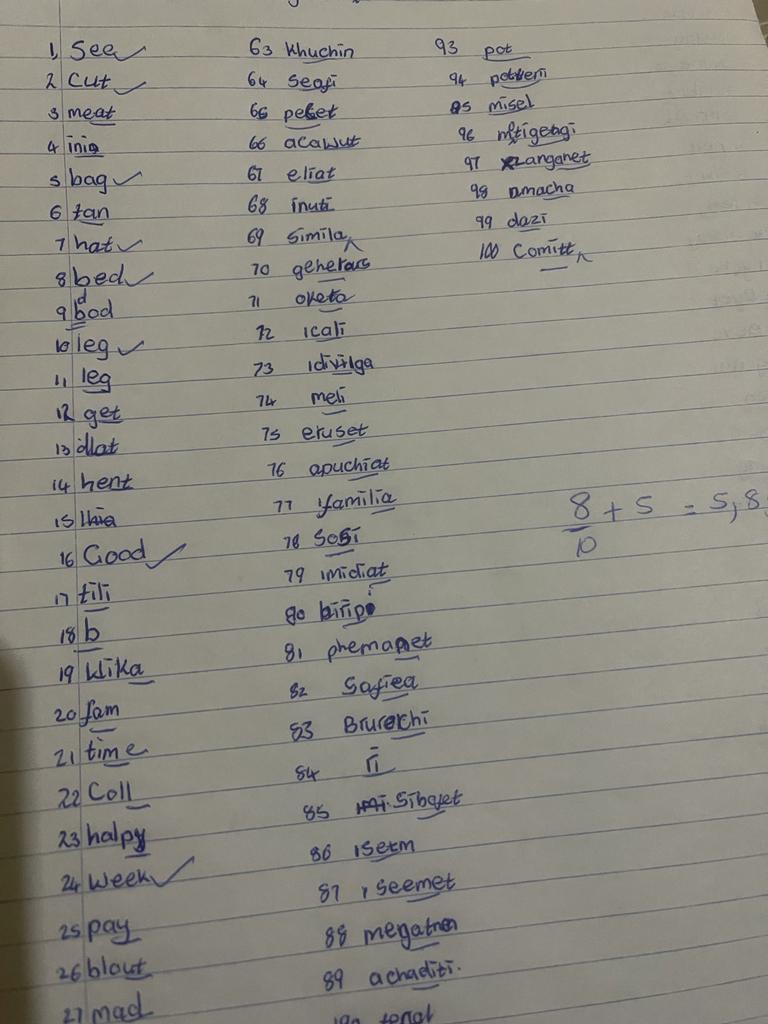 1, See
2 cut
3 meat
4 inia
5 bag
6 tan
7 hat
8 bed
9 bod
d
10 leg
11, leg
12 get
13 dlat
14 hent
15 lhia
16 Good
17 tili
18 b
19 Wika
20 fam
21 time
22 Coll
23 halpy
24 Week
25 pay
26 blout
27 mad
63 khuchin
64 seafi
66
66 acawut
67 eliat
68 inuti
69 simila
70
71 oketa
72 icali
73
74 meli
75 eruset
76 apuchiat
77 familia
78 Sosi
79 imidiat
80
81, phemanet
82 Safiea
83
84 ri
85 Sibajet
86 isetm
87 , seemet
88
89 achaditi.
93 pot
94
95 misel
96
97 anganet
98 amacha
99 dazi
100 Comitt
8 + 5 = 5,8
10